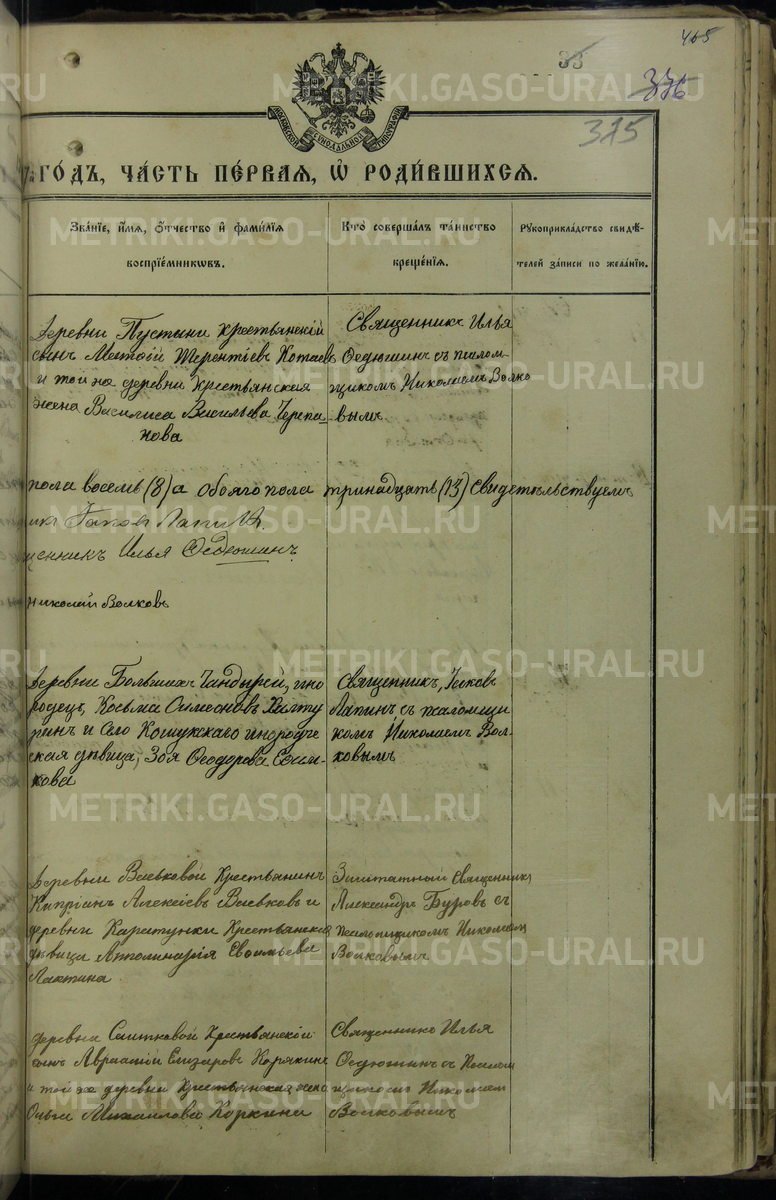 465
33
336
325
МОСКОВСКОЙ СѴНОДАЛЬНОЙ ТИПОГРАФІИ
ГО́ДЪ, ЧА́СТЬ ПЕ́РВАЯ, Ѡ҆ РОДИ́ВШИХСЯ.
Зва́нїе, и҆́мя, ѻ҆́тчество и҆ фами́лїя воспрїе́мникѡвъ.
Кто̀ соверша́лъ та́инство креще́нїя.
Рꙋкоприкла́дство свидѣ́телей за́писи по жела́нїю.
Деревни Пустыни крестьянскій
сынъ Матѳій Терентіевъ Котаевъ
и той же деревни крестьянская
жена Василиса Васильева Черепа-
нова
Священникъ Илья
Ѳедюшинъ съ псалом-
щикомъ Николаемъ Волко
вымъ
пола восемь (8) а обоего пола тринадцать (13) свидетельствуемъ
Іаковъ Лапинъ
щенникъ Илья Ѳедюшинъ
Николай Волковъ
Деревни Большихъ Чандырей, ино
родецъ, Косьма Симеоновъ Халту
ринъ и Село Кошукскаго инородче
ская дѣвица, Зоя Ѳеодорова Есаул-
кова
Священникъ, Іаковъ
Лапинъ съ псаломщи
комъ Николаемъ Вол-
ковымъ
Деревни Ваевковой крестьянинъ
Кипріанъ Алексіевъ Ваевковъ и
деревни Каратунки крестьянская
дѣвица Апполинарія
Лаптина
Заштатный Священникъ
Александръ Буровъ съ
псаломщикомъ Николаемъ
Волковымъ
Деревни Саитковой крестьянскій
сынъ Авраамій Елизаровъ Корякинъ
и той же деревни крестьянская жена
Ольга Михаилова Коркина
Священникъ Илья
Ѳедюшинъ съ Псалом
щикомъ Николаем
Волковымъ
METRIKI.GASO-URAL.RU